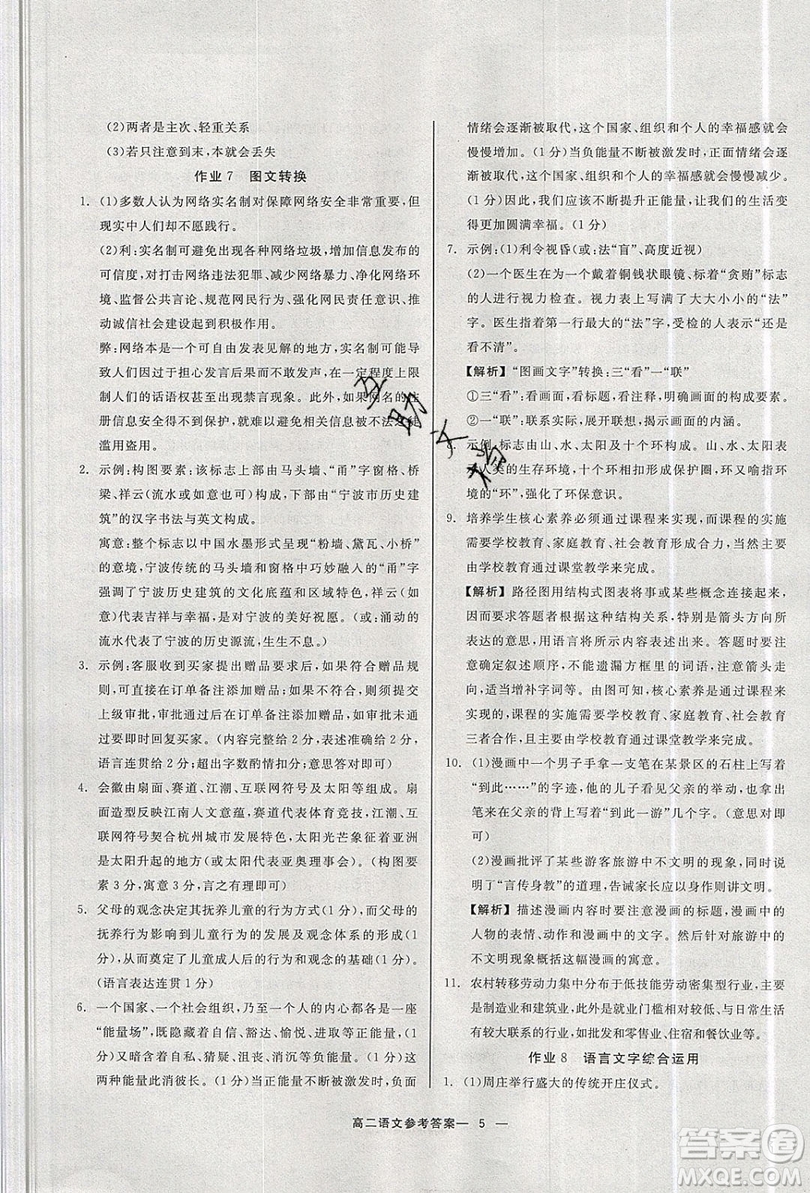 (2)两者是主次、轻重关系
(3)若只注意到末，本就会丢失
作业7 图文转换
1. (1)多数人认为网络实名制对保障网络安全非常重要，但
现实中人们却不愿践行。
(2)利：实名制可避免出现各种网络垃圾，增加信息发布的
可信度，打击网络违法犯罪、减少网络暴力、净化网络环
境、监督公共言论、规范网民行为、强化网民责任意识、推
动诚信社会建设起到积极作用。
弊：网络本是一个可自由发表见解的地方，实名制可能导
致人们因害怕发言后果严重而不敢发声，在一定程度上
人们的话语权已被剥夺或禁言现象。此外，如果网民的注
册信息安全得不到保护，就难以避免相关信息不被不法分子
滥用盗用。
2. 示例：构图要素：该标志上部由马头墙、“甬”字窗格、桥
梁、祥云(流水或如意也可)构成，下部由“宁波市历史建
筑”的汉字书法与英文构成。
寓意：整个标志以中国水墨形式呈现“粉墙、黛瓦、小桥”的
意境，宁波传统的马头墙和窗格中巧妙融入的“甬”字，展
现了宁波历史建筑的文化底蕴和区域特色，祥云(或：如
意)代表吉祥与幸福，是对宁波的美好祝愿。(或：涌动的
流水代表了宁波的历史源流，生生不息。)
3. 示例：客服收到买家赠品要求后，如果符合赠品规
则，可直接在订单备注添加赠品；如果不符合规则，须提交
上级审批，审批通过后可在订单备注添加赠品，审批不通
过需要即时回复买家。(内容完整给出4分，不完整酌扣，
语言连贯给出2分；超出字数酌情扣分；意思答对即可)
4. 会徽由扇面、赛道、江潮、互联网符号及太阳等组成。扇
面造型反映江南人文意蕴，赛道代表体育竞技，江潮、互
联网符号契合杭州城市发展特色，太阳光芒象征着亚洲
是太阳升起的地方(或太阳代表亚奥理事会)。(构图要
素3分，寓意3分，言之有理即可)
5. 父母的观念决定其抚养儿童的行为方式(1分)，而父母的
抚养行为影响到儿童行为及其发展(1分)和儿童行为(1分)。
(语言表达连贯1分)
6. 一个国家、一个社会组织，乃至一个人的内心都各是一座
“能量场”，既隐藏着自信、豁达、愉悦、进取等正能量，(1
分)又暗含着自私、猜疑、沮丧、消沉等负能量。(1分)这
两种能量此消彼长。(1分)当正能量不断被激发时，负面
情绪会逐渐被取代，这个国家、组织和个人的幸福感就会
慢慢增加。(1分)当负能量不断被激发时，正面情绪会逐
渐被取代，这个国家、组织和个人的幸福感就会慢慢减少。
(1分)因此，我们应该不断提升正能量，让我们的生活变
得更加圆满幸福。(1分)
7. 示例：(1)利令视昏(或：法“盲”、高度近视)
(2)一个医生在为一个戴着铜钱状眼镜、标着“贪贿”标志
的人进行视力检查。视力表上写满了大大小小的“法”
字。医生指着第一行最大的“法”字，受检的人表示“还是
看不清”。
【解析】“图画文字”转换：三“看”一“联”
①三“看”：看画面，看标题，看注释，明确画面的构成要素。
②一“联”：联系实际，展开联想，明确寓意。
示例：标志由山、水、太阳及十个环构成。山、水、太阳代
表人类的生存环境，十个环相扣形成保护层，又喻指环境
的“环”，强化了环保意识。
9. 培养学生核心素养必须通过课程来实现，而课程的实施
需要学校教育、家庭教育、社会教育形成合力来完成，主要
由学校教育通过课堂教学来完成。
【解析】路径图用结构式图表将事或某些概念连接起来，
要求答题者弄清楚彼此之间的结构关系，特别是箭头方向所
表达的意思，用语言简明地表述出来。答题时要注意
确定叙述顺序，不能遗漏方框里的词语，注意箭头走向，
适当增补字词等。由图可知，核心素养是通过课程来
实现的，课程的实施需要学校教育、家庭教育、社会教育
三者合作，其中主要由学校教育通过课堂教学来实现。
10. (1)漫画中一个男子手拿一支笔在某景区的石柱上写着
“到此……”的字样，他的儿子看见父亲的举动，也拿出
笔来在父亲的背上写着“到此一游”几个字。(意思对即
可)
(2)漫画批评了某些游客不文明的现象，同时说明
了“言传身教”的道理，告诫家长们外出旅游身体力行讲文明。
【解析】描述漫画内容要注意漫画的标题，漫画中的
人物的表情、动作和漫画中的文字。然后联系现实中的
不文明现象概括漫画的寓意。
11. 农村转移劳动力集中分布于低技能劳动密集型行业，主
要是制造业和建筑业，此外就是就业门槛相对较低、与日常生
活有较大联系的行业，如批发和零售业、住宿和餐饮业等。
作业8 语言文字综合运用
1. (1)周庄举行盛大的传统开庄仪式。
高二语文参考答案— 5 —
互助文档
答案圈
MXQE.COM